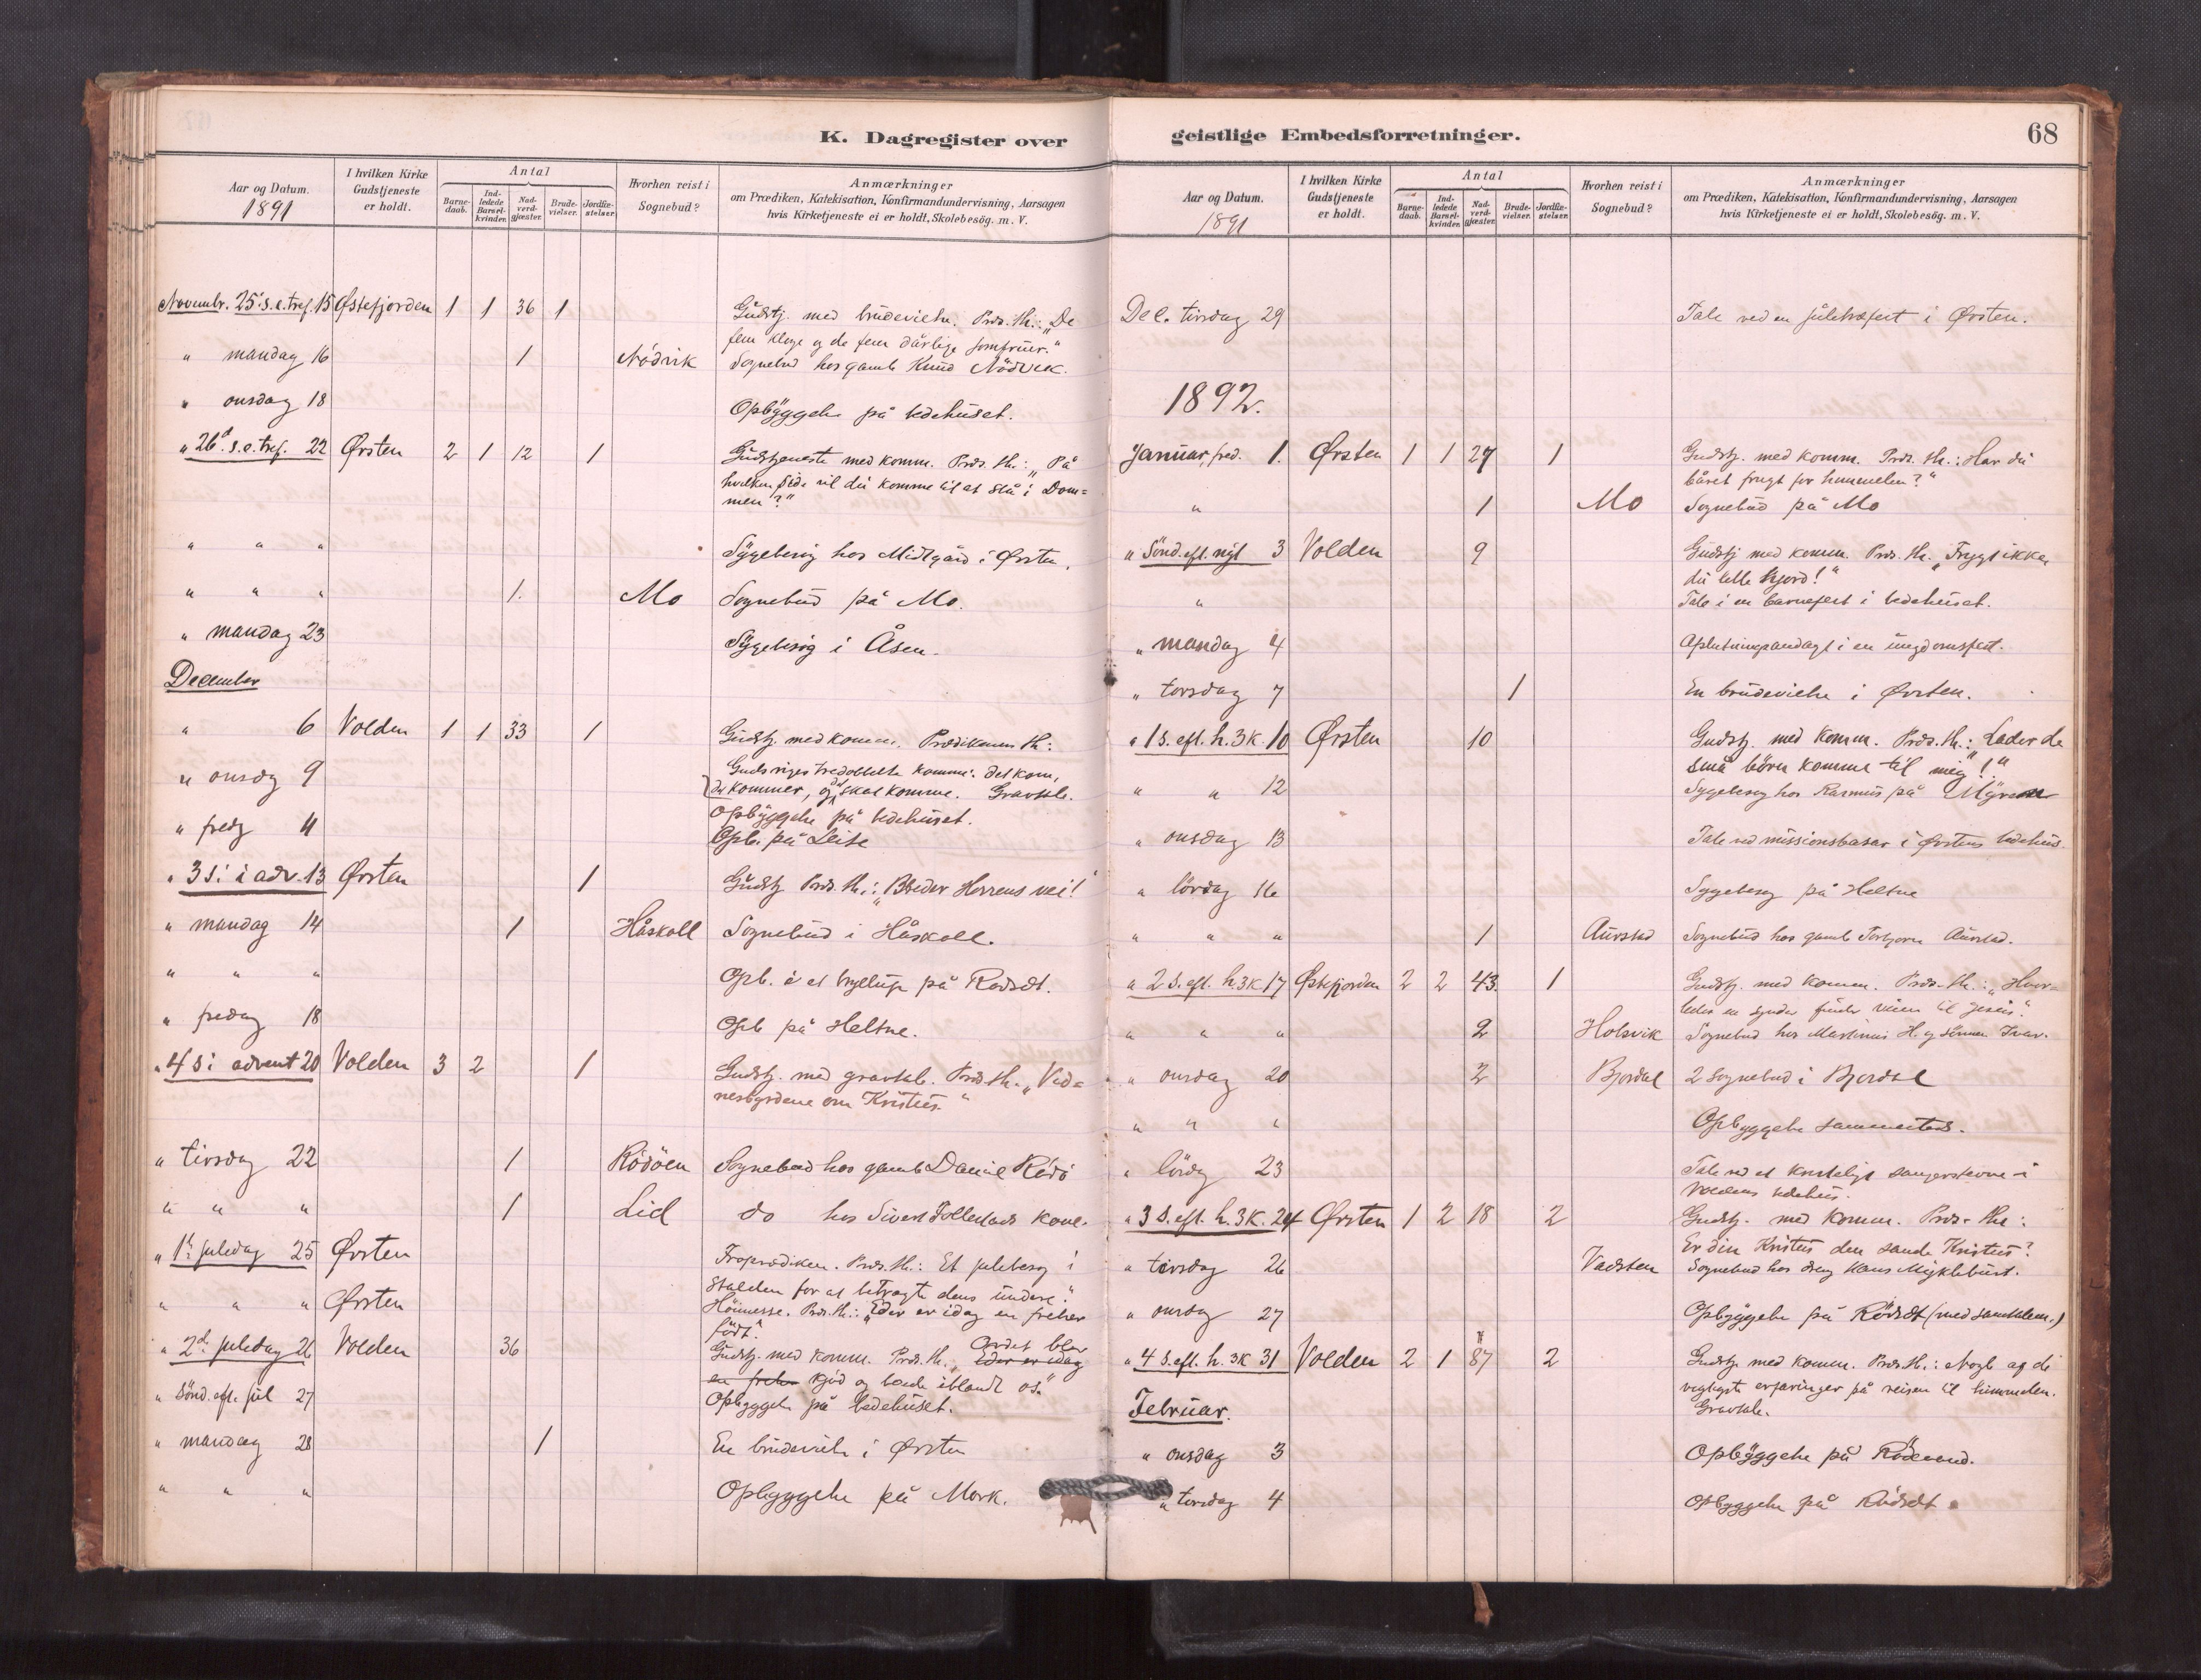 K. Dagregister over
Aar og Datum.
1891
I hvilken Kirke
Gudstjeneste
er holdt.
Antal
Barne-
daab.
Ind-
ledede
Barsel-
kvinder.
Nad-
verd-
gjæster.
Brude-
vielser.
Jordfæ-
stelser.
Hvorhen reist i
Sognebud?
Anmærkninger
om Prædiken, Katekisation, Konfirmandundervisning, Aarsagen
hvis Kirketjeneste ei er holdt, Skolebesög. m. V.
Novembr. 25' s.e.tref. 15 Østefjorden 1 1 36 1 Gudstj. med brudevielse. Præd. th.: „De
fem kloge og de fem dårlige jomfruer."
" mandag 16 1 Nödvik Sognebud hos gamle Knud Nödvik.
" onsdag 18 Opbyggelse på bedehuset.
" 26d s.e.tref. 22 Ørsten 2 1 12 1 Gudstjeneste med komm. Præd. th.: „På
hvilken side vil du komme til at stå i Dom=
men?"
" " " Sygebesög hos Midtgård i Ørsten.
" " " 1. Mo Sognebud på Mo.
" mandag 23 Sygebesög i Åsen.
December
" 6 Volden 1 1 33 1 Gudstj. med komm. Prædikenens th:
Guds riges tredobbelte komme: det kom,
" onsdg 9 det kommer, og det skal komme. Gravtale.
Opbyggelse på bedehuset.
" fredg 11 Opb. på Leite
" 3 s. i adv. 13 Ørsten 1 Gudstj. Præd. th.: „Bereder Herrens vei!"
" mandag 14 1 Håskoll Sognebud i Håskoll.
" " " Opb. i et bryllup på Rødsdt.
" fredag 18 Opb på Heltne.
" 4 s i advent 20 Volden 3 2 1 Gudstj. med gravtale. Præd. th. „Vid=
nesbyrdene om Kristus."
" tirsdag 22 1 Rödöen Sognebud hos gamle Daniel Rödö
" " " 1 Lid do hos Sivert Follestads kone.
" 1ste juledag 25 Ørsten Froprædiken. Præd. th.: Et julebesög i
stalden for at betragte dens undere."
" " " Ørsten Höimesse. Præd. th.: „Eder er idag en frelser
født."
" 2d juledag 26 Volden 36 Gudstj. med komm. Præd. th. „Eder er idag Ordet blev
en frelser kjöd og boede iblandt os."
" Sönd. eft. jul 27 Opbyggelse på bedehuset.
" mandag 28 1 En brudevielse i Ørsten
" " " Opbyggelse på Mork.
geistlige Embedsforretninger.
68
Aar og Datum.
1891
I hvilken Kirke
Gudstjeneste
er holdt.
Antal
Barne-
daab.
Ind-
ledede
Barsel-
kvinder.
Nad-
verd-
gjæster.
Brude-
vielser.
Jordfæ-
stelser.
Hvorhen reist i
Sognebud?
Anmærkninger
om Prædiken, Katekisation, Konfirmandundervisning, Aarsagen
hvis Kirketjeneste ei er holdt, Skolebesög. m. V.
Dec. tirsdag 29 Tale ved en juletræfest i Ørsten.
1892.
Januar, fred. 1. Ørsten 1 1 27 1 Gudstj. med komm. Præd. th.: Har du
båret frugt for himmelen?"
" 1 Mo Sognebud på Mo
" Sönd. eft. nyt 3 Volden 9 Gudstj med komm. Præd. th. „Frygt ikke
du lille hjord!"
" Tale i en barnefest i bedehuset.
" mandag 4 Afslutningsandagt i en ungdomsfest.
" torsdag 7 1 En brudevielse i Ørsten.
" 1 s. eft. h. 3 K. 10 Ørsten 10 Gudstj. med komm. Præd. th.: „Lader de
små børn komme til mig!"
" " 12 Sygebesög hos Rasmus på Myren
" onsdag 13 Tale ved missionsbasar i Ørstens bedehus.
" lördag 16 Sygebesög på Heltne
" " " 1 Aurstad Sognebud hos gamle Torbjørn Aurstad.
" 2 S. eft. h. 3 K 17 Østefjorden 2 2 43. 1 Gudstj. med komm. Præd. th.: „Hvor=
ledes en synder finder veien til Jesus."
" " " 2 Holsvik Sognebud hos Martinus H. og sönnen Ivar.
" onsdag 20 2 Bjordal 2 sognebud i Bjordal
" " " Opbyggelse sammesteds.
" lördg 23 Tale ved et kristeligt sangerstevne i
Voldens bedehus.
" 3 S. eft. h. 3 K. 24 Ørsten 1 2 18 2 Gudstj. med komm. Præd. the:
Er din Kristus den sande Kristus?
" tirsdag 26 Vadsten Sognebud hos dreng Hans Myklebust.
" onsdag 27 Opbyggelse på Rødsdt (med samtalem.)
" 4 S. eft. h. 3K 31 Volden 2 1 87 2 Gudstj. med komm. Præd. th.: Nogle af de
vigtigste erfaringer på reisen til himmelen.
Gravtale.
Februar.
" onsdag 3 Opbyggelse på Rödsand.
" torsdag 4 Opbyggelse på Rödsdt